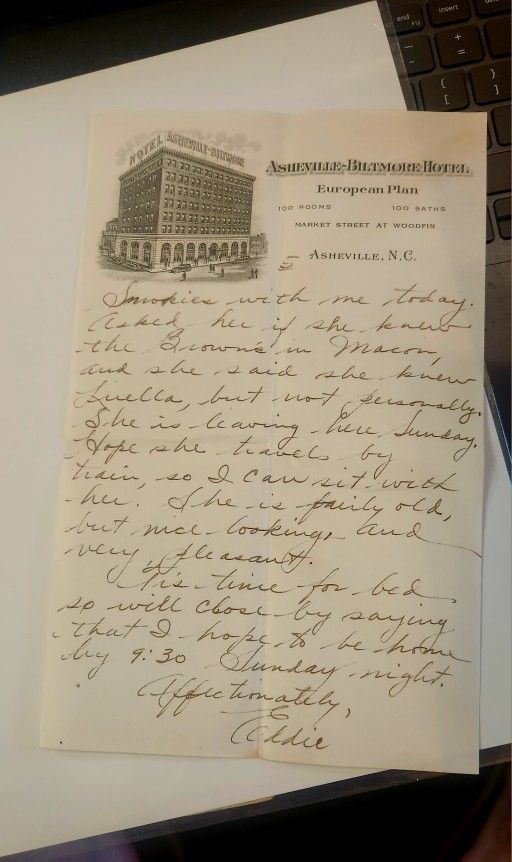 end
F12
insert
+
=
-
{
[
}
]
HOTEL ASHEVILLE-BILTMORE
ASHEVILLE-BILTMORE HOTEL
European Plan
100 ROOMS 100 BATHS
MARKET STREET AT WOODFIN
ASHEVILLE, N.C.
5
Smokies with me today.
Asked her if she knew
the Brown's in Macon,
and she said she knew
Luella, but not personally.
She is leaving here Sunday.
Hope she travels by
train, so I can sit with
her. She is fairly old,
but nice looking, and
very pleasant.
'Tis time for bed
so will close by saying
that I hope to be home
by 9:30 Sunday night.
Affectionately,
Eddie